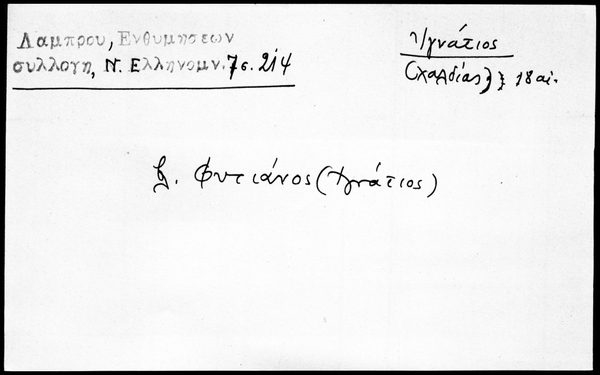 Λαμπρου, Ενθυμησεων
συλλογη, Ν. Ελληνομν. 7 σ. 214
Ἰγνάτιος
(Χαλδίας) 18 αἰ.
βλ. Φυτιάνος (Ἰγνάτιος)